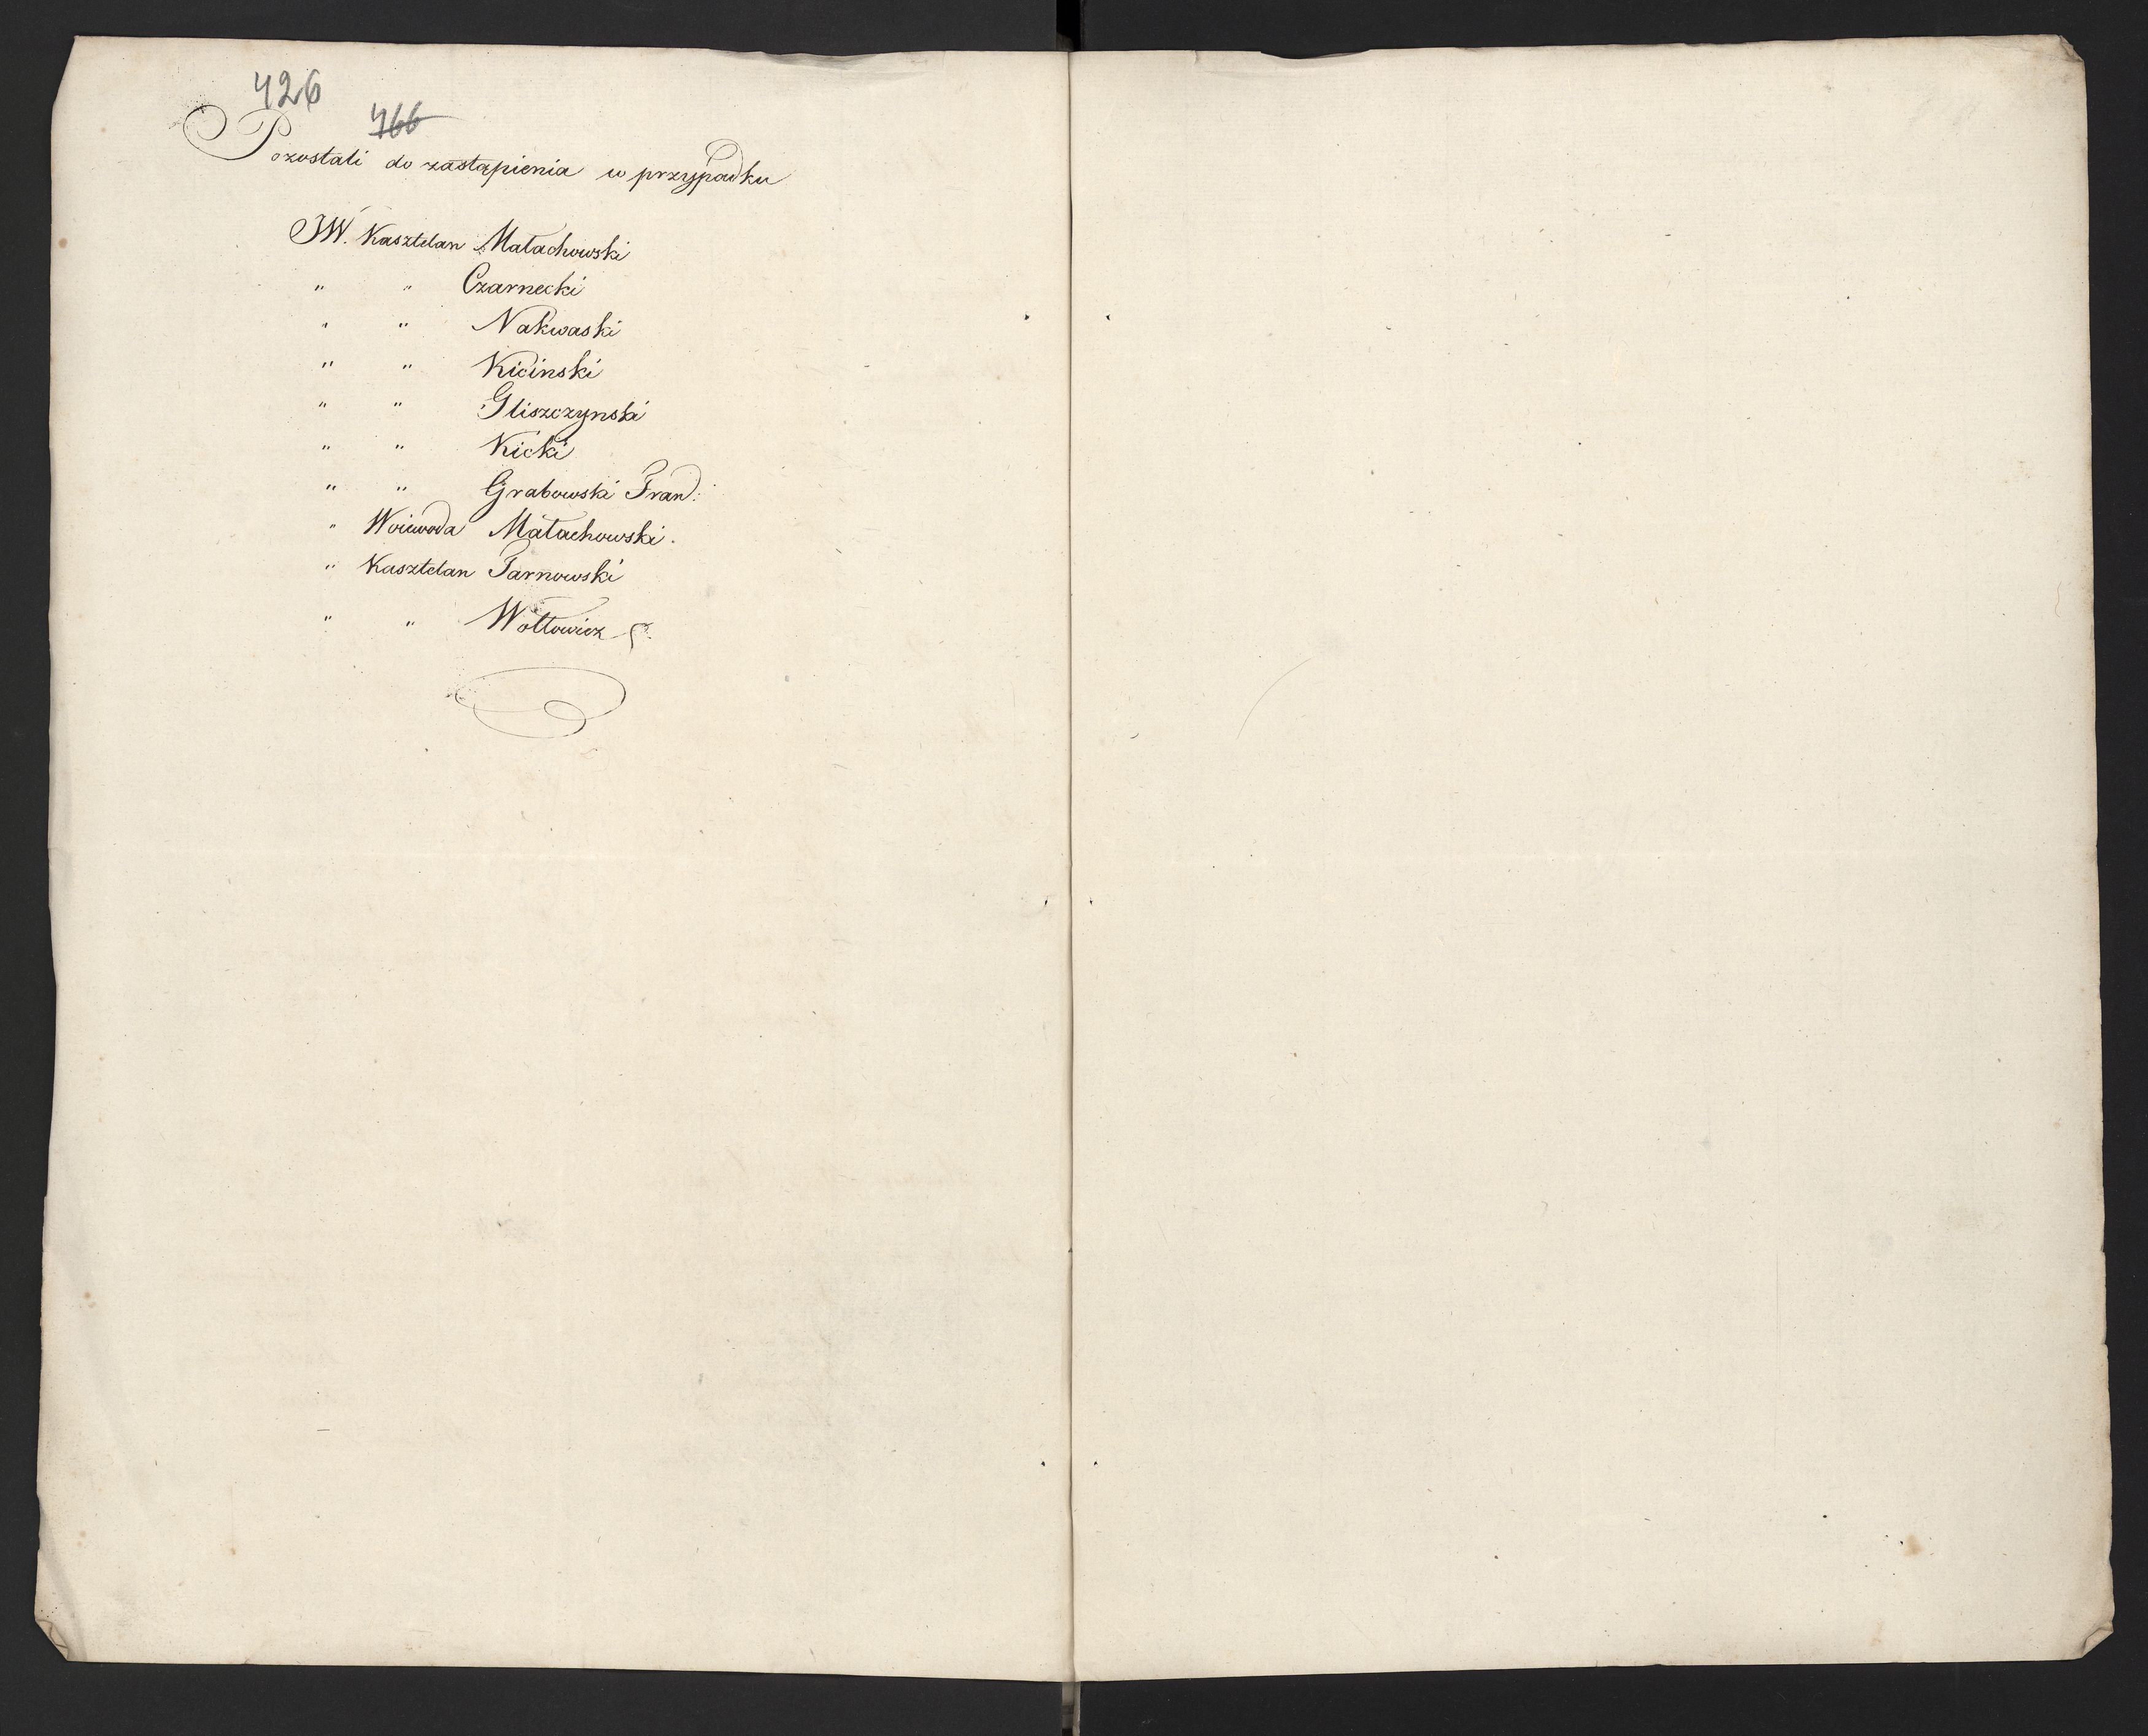 426
466
Pozostali do zastąpienia w przypadku
JW. Kasztelan Małachowski
" " Czarnecki
" " Nakwaski
" " Kicinski
" " Gliszczynski
" " Kicki
" " Grabowski Fran:
" Woiewoda Małachowski.
" Kasztelan Tarnowski
" " Wołłowicz